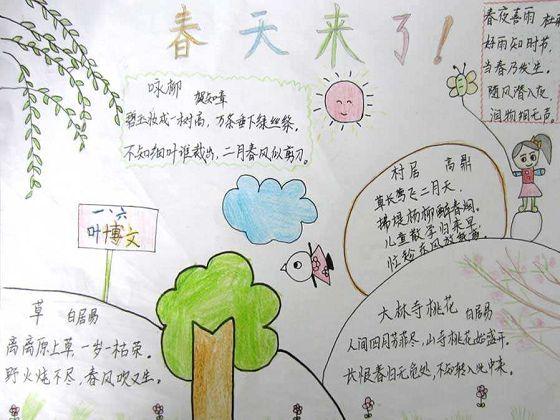 春天来了!
咏柳 贺知章
碧玉妆成一树高,万条垂下绿丝绦。
不知细叶谁裁出,二月春风似剪刀。
春夜喜雨 杜
好雨知时节
当春乃发生。
随风潜入夜
润物细无声。
村居 高鼎
草长莺飞二月天,
拂堤杨柳醉春烟。
儿童散学归来早
忙趁东风放纸鸢
一、六
叶博文
草 白居易
离离原上草,一岁一枯荣。
野火烧不尽,春风吹又生。
大林寺桃花 白居易
人间四月芳菲尽,山寺桃花始盛开。
长恨春归无觅处,不知转入此中来。